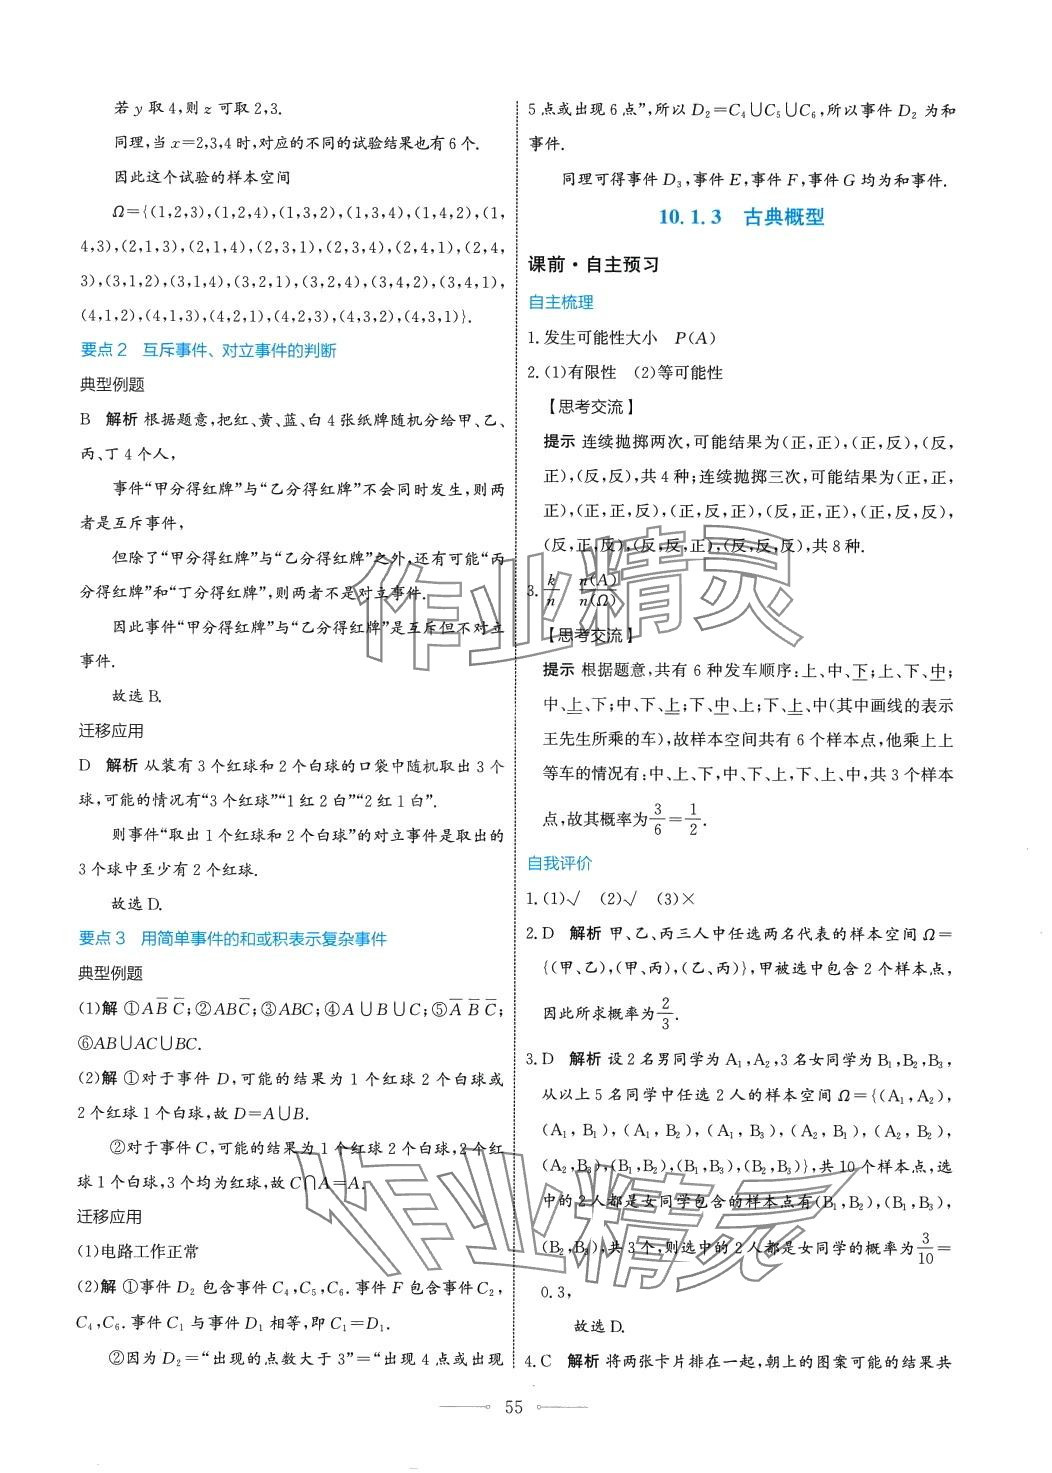 若 y 取 4,则 z 可取 2,3.
同理,当 x=2,3,4 时,对应的不同的试验结果也有 6 个.
因此这个试验的样本空间
Ω={(1,2,3),(1,2,4),(1,3,2),(1,3,4),(1,4,2),(1,
4,3),(2,1,3),(2,1,4),(2,3,1),(2,3,4),(2,4,1),(2,4,
3),(3,1,2),(3,1,4),(3,2,1),(3,2,4),(3,4,2),(3,4,1),
(4,1,2),(4,1,3),(4,2,1),(4,2,3),(4,3,2),(4,3,1)}.
要点 2 互斥事件、对立事件的判断
典型例题
B 解析 根据题意,把红、黄、蓝、白 4 张纸牌随机分给甲、乙、
丙、丁 4 个人,
事件“甲分得红牌”与“乙分得红牌”不会同时发生,则两
者是互斥事件,
但除了“甲分得红牌”与“乙分得红牌”之外,还有可能“丙
分得红牌”和“丁分得红牌”,则两者不是对立事件.
因此事件“甲分得红牌”与“乙分得红牌”是互斥但不对立
事件.
故选 B.
迁移应用
D 解析 从装有 3 个红球和 2 个白球的口袋中随机取出 3 个
球,可能的情况有“3 个红球”“1 红 2 白”“2 红 1 白”.
则事件“取出 1 个红球和 2 个白球”的对立事件是取出的
3 个球中至少有 2 个红球.
故选 D.
要点 3 用简单事件的和或积表示复杂事件
典型例题
(1)解 ①AB̅ C̅;②ABC̅;③ABC;④A∪B∪C;⑤A̅ B̅ C̅;
⑥AB∪AC∪BC.
(2)解 ①对于事件 D,可能的结果为 1 个红球 2 个白球或
2 个红球 1 个白球,故 D=A∪B.
②对于事件 C,可能的结果为 1 个红球 2 个白球,2 个红
球 1 个白球,3 个均为红球,故 C∩A=A.
迁移应用
(1)电路工作正常
(2)解 ①事件 D₂ 包含事件 C₄,C₅,C₆. 事件 F 包含事件 C₂,
C₄,C₆. 事件 C₁ 与事件 D₁ 相等,即 C₁=D₁.
②因为 D₂=“出现的点数大于 3”=“出现 4 点或出现
5 点或出现 6 点”,所以 D₂=C₄∪C₅∪C₆,所以事件 D₂ 为和
事件.
同理可得事件 D₃,事件 E,事件 F,事件 G 均为和事件.
10.1.3 古典概型
课前·自主预习
自主梳理
1. 发生可能性大小 P(A)
2. (1)有限性 (2)等可能性
【思考交流】
提示 连续抛掷两次,可能结果为(正,正),(正,反),(反,
正),(反,反),共 4 种;连续抛掷三次,可能结果为(正,正,
正),(正,正,反),(正,反,正),(反,正,正),(正,反,反),
(反,正,反),(反,反,正),(反,反,反),共 8 种.
3. k/n n(A)/n(Ω)
【思考交流】
提示 根据题意,共有 6 种发车顺序:上、中、下;上、下、中;
中、上、下;中、下、上;下、中、上;下、上、中(其中画线的表示
王先生所乘的车),故样本空间共有 6 个样本点,他乘上上
等车的情况有:中、上、下,中、下、上,下、上、中,共 3 个样本
点,故其概率为 3/6=1/2.
自我评价
1. (1)√ (2)√ (3)×
2. D 解析 甲、乙、丙三人中任选两名代表的样本空间 Ω=
{(甲、乙),(甲、丙),(乙、丙)},甲被选中包含 2 个样本点,
因此所求概率为 2/3.
3. D 解析 设 2 名男同学为 A₁,A₂,3 名女同学为 B₁,B₂,B₃,
从以上 5 名同学中任选 2 人的样本空间 Ω={(A₁,A₂),
(A₁,B₁),(A₁,B₂),(A₁,B₃),(A₂,B₁),(A₂,B₂),
(A₂,B₃),(B₁,B₂),(B₁,B₃),(B₂,B₃)},共 10 个样本点,选
中的 2 人都是女同学包含的样本点有(B₁,B₂),(B₁,B₃),
(B₂,B₃),共 3 个,则选中的 2 人都是女同学的概率为 3/10=
0.3,
故选 D.
4. C 解析 将两张卡片排在一起,朝上的图案可能的结果共
55
作业精灵
作业精灵